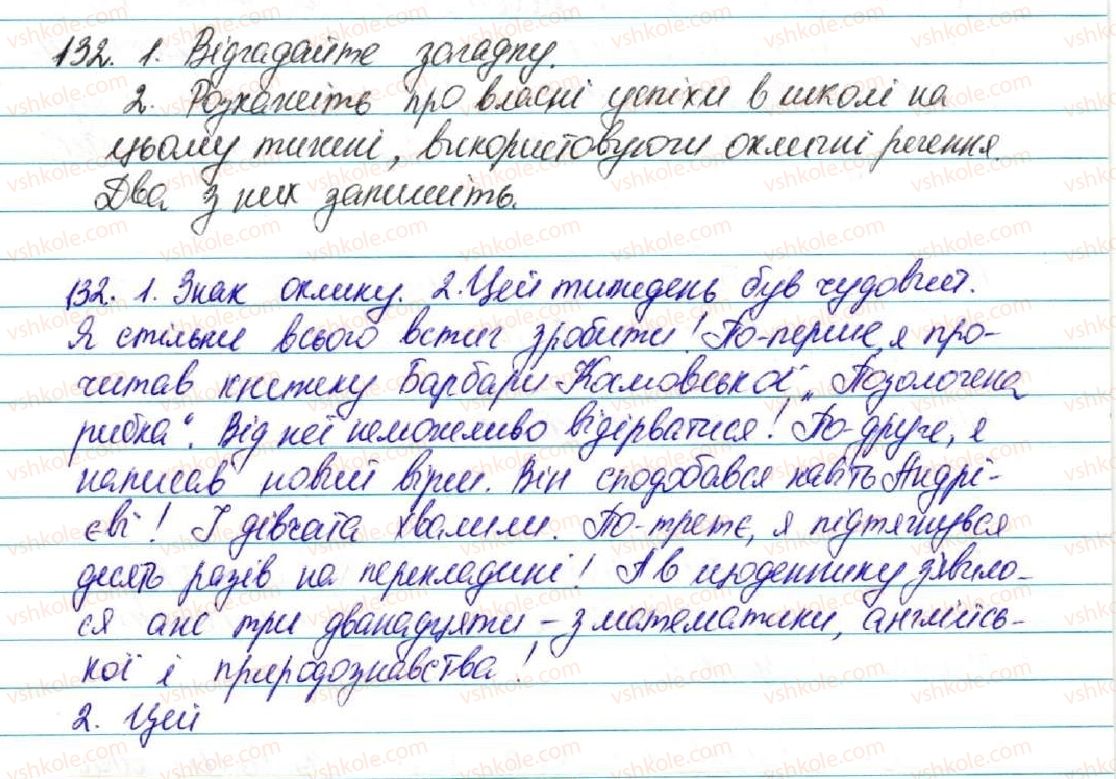 132. 1. Відгадайте загадку.
2. Розкажіть про власні успіхи в школі на
цьому тижні, використовуючи окличні речення.
Два з них запишіть.
132. 1. Знак оклику. 2. Цей тиждень був чудовий.
Я стільки всього встиг зробити! По-перше, я про-
читав книжку Барбари Космовської „Позолочена
рибка“. Від неї неможливо відірватися! По-друге, я
написав новий вірш. Він сподобався навіть Андрі-
єві! І дівчата хвалили. По-третє, я підтягнувся
десять разів на перекладині! А в щоденнику з'явило-
ся аж три дванадцяти – з математики, англійсь-
кої і природознавства!
2. Цей